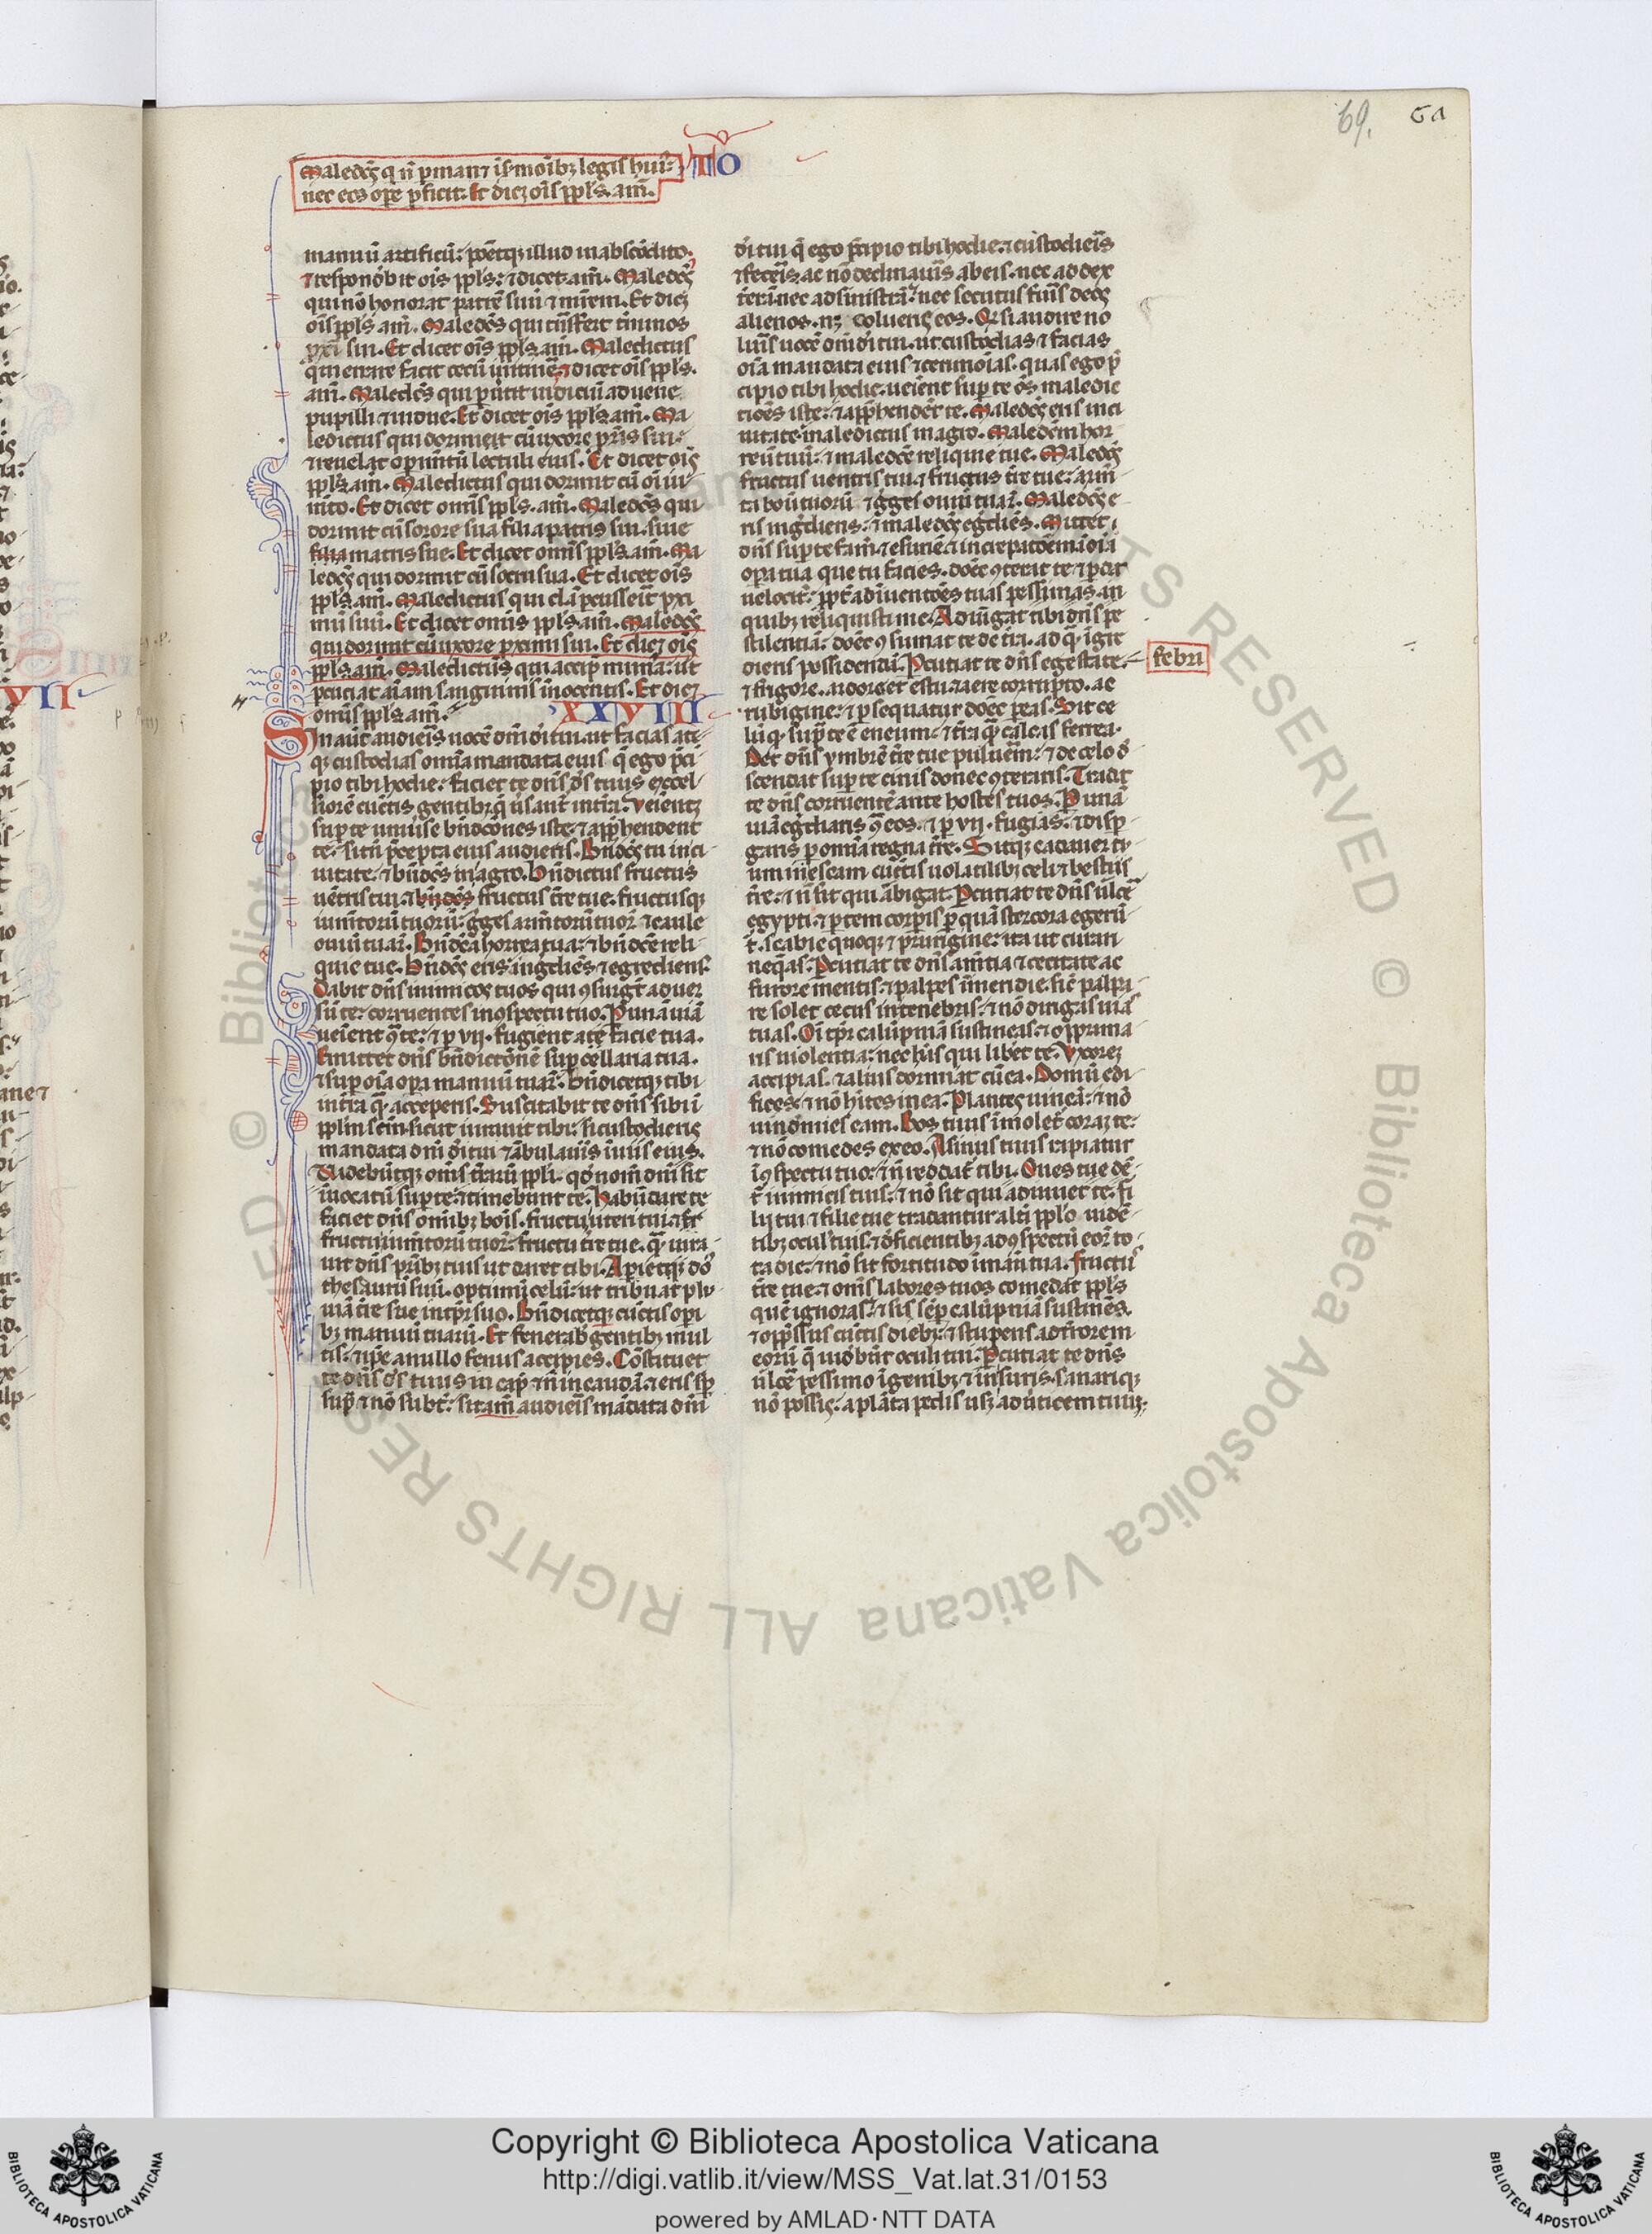 69.
Maledcs q n pmanet i smoibz legis hui:
nec eos ope pficit. Et dicz ois ppls. am.
TO
manuu artificu: poetqz illud in abscodito.
⁊ respondbit ois ppls: ⁊ dicet. am. Maledcs
qui no honorat patre sui ⁊ mrem. Et dicz
ois ppls am. Maledcs qui tnsfert tminos
pxi sui. Et dicet ois ppls. am. Maledictus
qui errare facit cecu in itine ⁊ dicet ois ppls.
am. Maledcs qui puertit iudiciu aduene
pupilli ⁊ uidue. Et dicet ois ppls. am. Ma
ledictus qui dormierit cu uxore pris sui:
⁊ reuelat opimtu lectuli eius. Et dicet ois
ppls. am. Maledictus qui dormit cu oi iu
mto. Et dicet omis ppls. am. Maledcs qui
dormit cu sorore sua filia patris sui. siue
filia matris sue. Et dicet omis ppls. am. Ma
ledcs qui dormit cu socru sua. Et dicet ois
ppls. am. Maledictus qui cla pcusserit pxi
mu suu. Et dicet omis ppls. am. Maledcs
qui dormit cu uxore pximi sui. Et dicz ois
ppls. am. Maledictus qui accip munia: ut
pcutiat aiam sanguinis inocentis. Et dicz
omis ppls. am.
XXVIII
Sin aut audieris uoce dni di tui. ut facias at
qz custodias omia mandata eius q ego pci
pio tibi hodie: faciet te dns ds tuus excel
liore cuctis gentibz q usant in tra. Veientz
sup te uniuse bndcones iste: ⁊ appbendent
te: si tn pcepta eius audieris. Bndcs tu in ci
uitate: ⁊ bndcs in agro. Bndictus fructus
uentris tui. ⁊ bndcs fructus tre tue. fructusqz
iumtoru tuoru: gges armtoru tuor ⁊ caule
ouiu tuar. Bndca horrea tua: ⁊ bndce reli
quie tue. Bndcs eris ingdies ⁊ egrediens.
Dabit dns inimicos tuos qui 9surgt aduer
su te: corruentes in 9spectu tuo. P una uia
ueient 9 te: ⁊ p vii. fugient a te facie tua.
Emittet dns bndictone sup cellaria tua.
⁊ sup oia opa manuu tuar. Bndicetqz tibi
in tra q acceperis. Suscitabit te dns sibi i
pplm scm. sicut iurauit tibi: si custodieris
mandata dni di tui ⁊ abulauis i uiis eius.
Videbutqz omis traru ppli. qd nom dni sit
iuocatu sup te: ⁊ timebunt te. Habudare te
faciet dns omibz bois. fructu uteri tui. ⁊ fr
fructu iumtoru tuor: fructu tre tue. q iura
uit dns pribz tuis ut daret tibi. Apietqz ds
thesauru suu. optimu celu: ut tribuat plu
uia tre tue in tpr suo. Bndicetqz cuctis opi
bz manuu tuaru. Et fenerab gentibz mul
tis: ⁊ ipe a nullo fenus accipies. Costituet
te dns ds tuus in cap ⁊ n in cauda: ⁊ eris sp
sup ⁊ no subt: si tam audieris madata dni
di tui q ego pcipio tibi hodie. ⁊ custodieis
⁊ feceis: ac no declinauis ab eis. nec ad dex
tera nec ad sinistra: nec secutus fuis deos
alienos. nz colueris eos. Q si audire no
luis uoce dni di tui. ut custodias ⁊ facias
oia mandata eius ⁊ cerimoias. quas ego p
cipio tibi hodie. ueient sup te os maledic
tioes iste: ⁊ apphendet te. Maledcs eris in ci
uitate: maledictus in agro. Maledcm hor
reu tuu: ⁊ maledce reliquie tue. Maledcs
fructus uentris tui. ⁊ fructus tre tue: arm
ta bou tuoru ⁊ gges ouiu tuar. Maledcs e
ris ingdiens: ⁊ maledcs egdies. Mittet
dns sup te fam ⁊ esurie ⁊ increpatoem i oia
opa tua que tu facies. doec 9terat te ⁊ pdat
uelocit: ppt adiuentoes tuas pessimas. in
quibz reliquisti me. Adiugat tibi dns pe
stilentia: doec 9sumat te de tra. ad q igre
diens possidenda. Pcutiat te dns egestate.
febri
⁊ frigore. ardore ⁊ estu. ⁊ aere corrupto. ac
rubigine: ⁊ psequatur doec peas. Sit ce
lu q sup te e eneum: ⁊ tra q calcas ferrea.
Det dns ymbre tre tue puluem: ⁊ de celo d
scendat sup te cinis donec 9teraris. Tradat
te dns corruente ante hostes tuos. P una
uia egdiaris 9 eos. ⁊ p vii. fugias. ⁊ disp
garis p omia regna tre. Sitqz cadauer tu
um in escam cuctis uolatilibz celi ⁊ bestiis
tre: ⁊ n sit qui abigat. Pcutiat te dns ulce
egypti. ⁊ ptem corpis p qua stercora egeru
t. scabie quoqz ⁊ prurigine: ita ut curari
neqas. Pcutiat te dns amtia ⁊ cecitate ac
furore mentis: ⁊ palpes i meridie. sic palpa
re solet cecus in tenebris: ⁊ no dirigas uias
tuas. Oi tpr calupnia sustineas: ⁊ oppma
ris uiolentia: nec has qui libet te. Vxorez
accipias. ⁊ alius dormiat cu ea. Domu edi
fices: ⁊ no hites in ea. Plantes uinea: ⁊ no
uindmies eam. Bos tuus imolet coraz te:
⁊ no comedes ex eo. Asinus tuus rapiatur
i 9spectu tuo: ⁊ n reddat tibi. Oues tue de
t inimicis tuis: ⁊ no sit qui adiuuet te. Fi
lij tui ⁊ filie tue tradantur alti pplo uide
tibz ocul tuis: ⁊ dficientibz ad 9spectu eor to
ta die: ⁊ no sit fortitudo i man tua. Fructu
tre tue: ⁊ omis labores tuos comedat ppls
que ignoras: ⁊ sis sep calupnia sustines.
⁊ oppssus cuctis diebz: ⁊ stupens ad trorem
eoru q uidbut oculi tui. Pcutiat te dns
ulce pessimo i genibz ⁊ in suris. sanariqz
no possis: a plata pedis usz ad uticem tuuz:
Copyright © Biblioteca Apostolica Vaticana
http://digi.vatlib.it/view/MSS_Vat.lat.31/0153
powered by AMLAD·NTT DATA
BIBLIOTECA APOSTOLICA VATICANA
BIBLIOTECA APOSTOLICA VATICANA